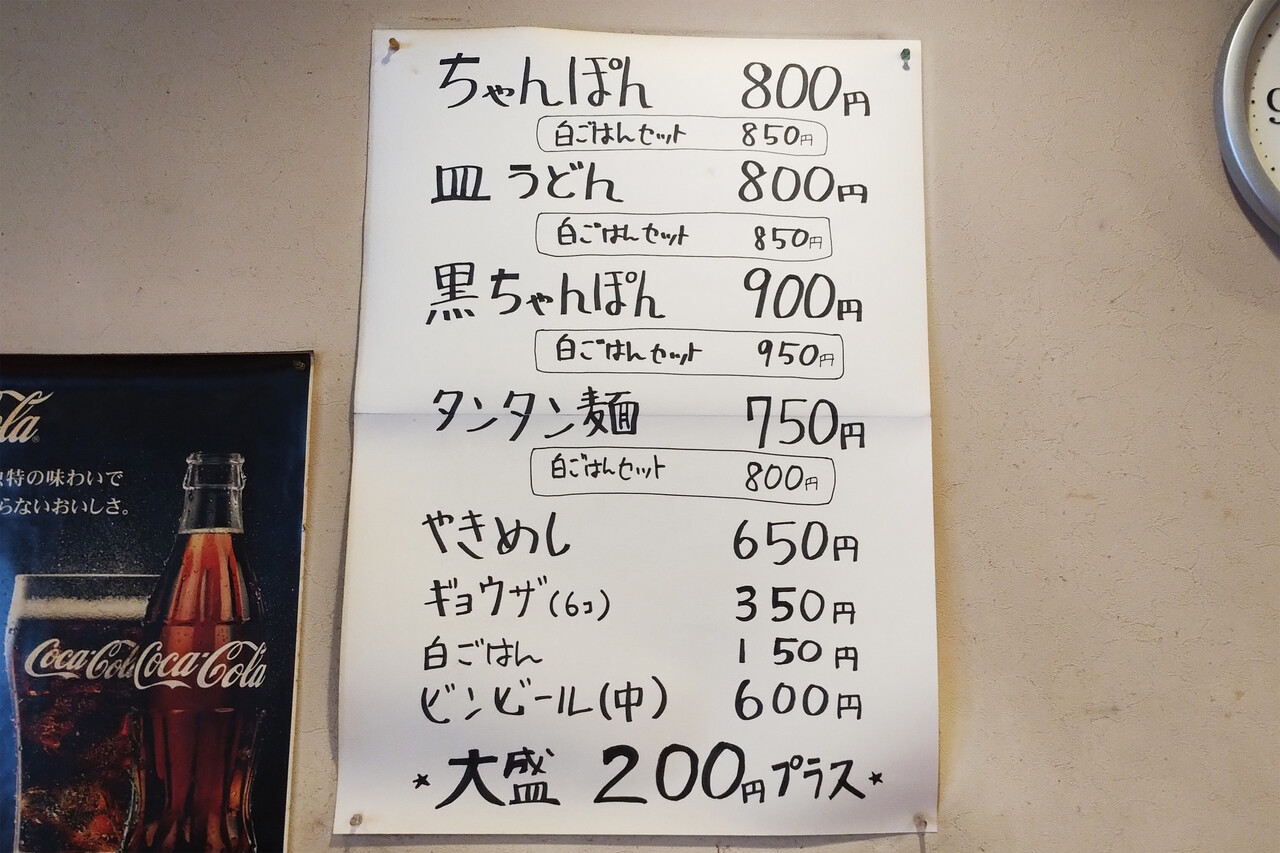 ちゃんぽん 800円
白ごはんセット 850円
皿うどん 800円
白ごはんセット 850円
黒ちゃんぽん 900円
白ごはんセット 950円
タンタン麺 750円
白ごはんセット 800円
やきめし 650円
ギョウザ(6コ) 350円
白ごはん 150円
ビンビール(中) 600円
★大盛 200円プラス★
特の味わいで
らないおいしさ。
Coca-Cola
Coca-Cola
9